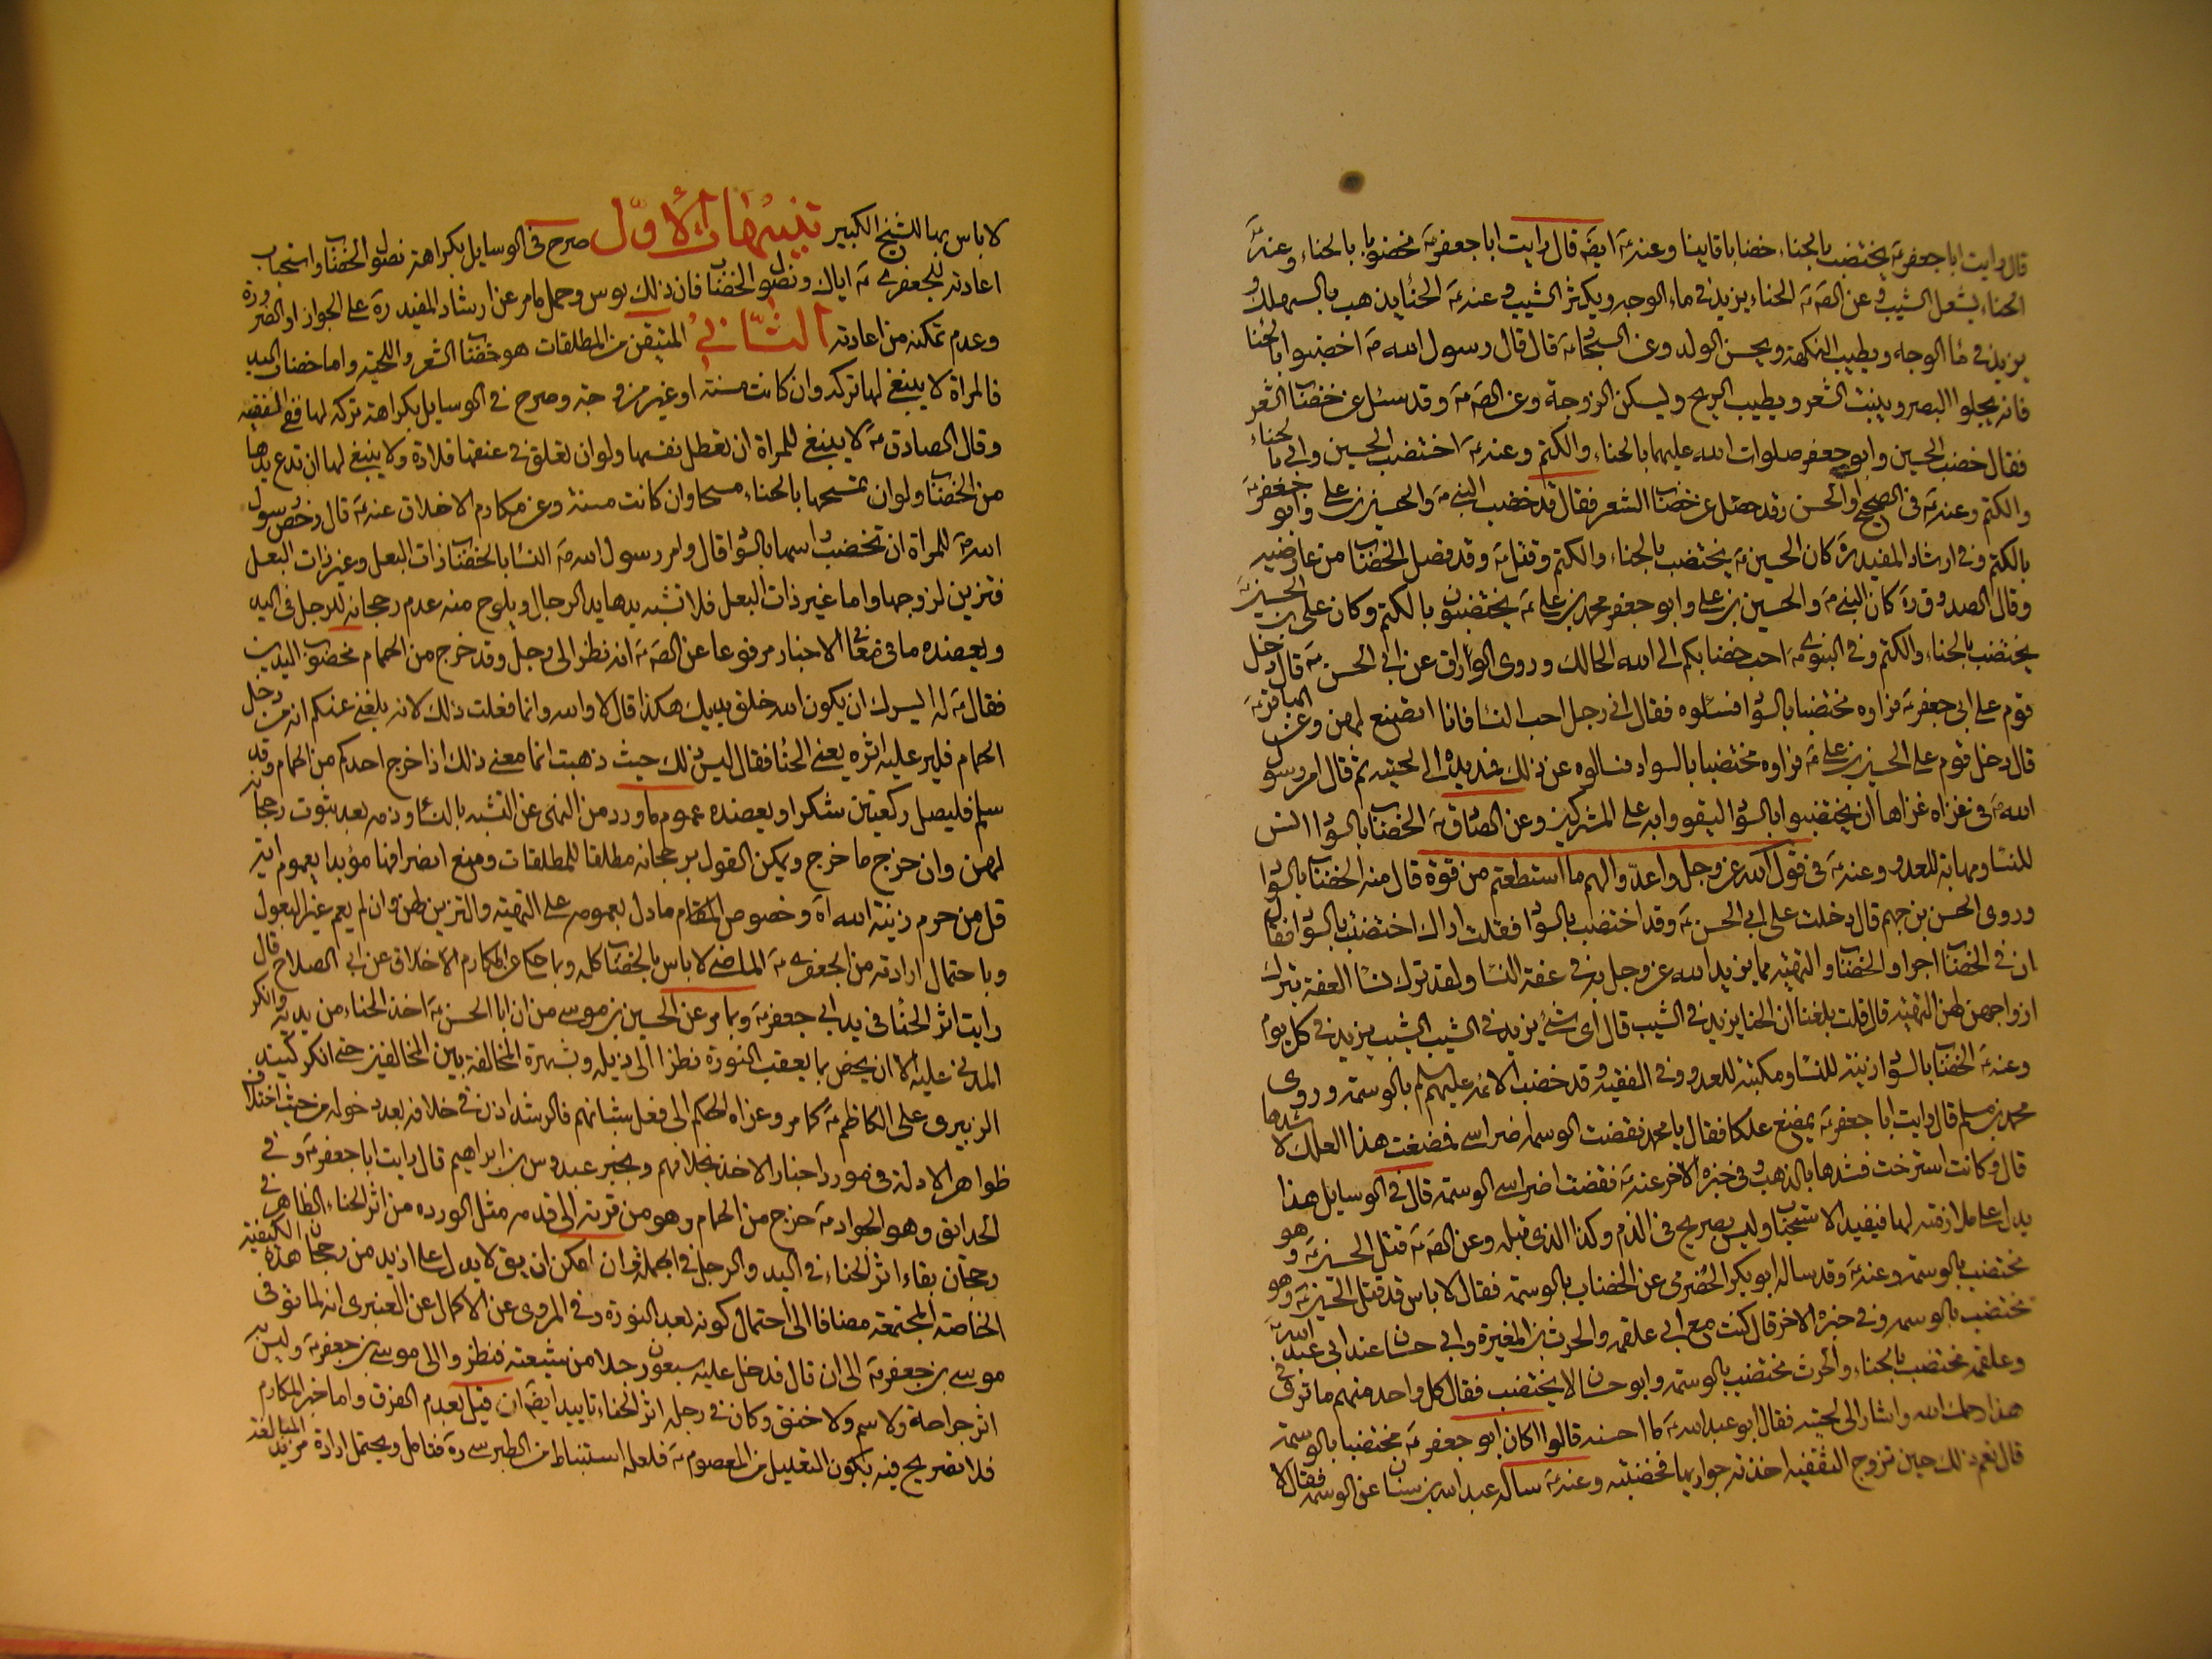 قال رايت ابا جعفر ع يختضب بالحناء خضابا قانيا وعنه ع ايضا قال رايت ابا جعفر ع مخضوبا بالحناء وعنه ع
الحناء يشعل الشيب وعن الص ع الحناء يزيد في ماء الوجه ويكثر الشيب وعنه ع الحنا يذهب بالسهك و
يزيد في ماء الوجه ويطيب النكهة ويحسن الولد وعن قال قال رسول الله ص اختضبوا بالحنا
فانه يجلوا البصر وينبت الشعر ويطيب الريح ويسكن الزوجة وعن الص ع وقد سئل عن خضاب الشعر
فقال خضب الحسين وابو جعفر صلوات الله عليهما بالحناء والكتم وعنه ع اختضب الحسين وابي بالحناء
والكتم وعنه ع في الصحيح او الحسن وقد سئل عن خضاب الشعر فقال قد خضب النبي ص والحسين بن علي وابو جعفر ع
بالكتم وفي ارشاد المفيد ره كان الحسين ع يختضب بالحناء والكتم وقتل ع وقد نصل الخضاب من عارضيه
وقال الصدوق ره كان النبي ص والحسين بن علي وابو جعفر محمد بن علي ع يختضبون بالكتم وكان علي بن الحسين ع
يختضب بالحناء والكتم وفي النبوي ص احب خضابكم الى الله الحالك وروى عن ابي الحسن ع قال دخل
قوم على ابي جعفر ع فراوه مختضبا بالسواد فسئلوه فقال اني رجل احب النساء فانا اتصنع لهن وعن الباقر ع
قال دخل قوم على الحسين بن علي ع فراوه مختضبا بالسواد فسالوه عن ذلك فمد يده الى لحيته ثم قال امر رسول
الله ص في غزاة غزاها ان يختضبوا بالسواد ليقووا به على المشركين وعن الصادق ع الخضاب بالسواد انس
للنساء ومهابة للعدو وعنه ع في قول الله عز وجل واعدوا لهم ما استطعتم من قوة قال منه الخضاب بالسواد
وروى الحسن بن جهم قال دخلت على ابي الحسن ع وقد اختضب بالسواد فقلت اراك اختضبت بالسواد فقال
ان في الخضاب اجرا والخضاب والتهيئة مما يزيد الله عز وجل به في عفة النساء ولقد ترك نساء العفة بترك
ازواجهن لهن التهيئة قال قلت بلغنا ان الحنا يزيد في الشيب قال اى شئ يزيد في الشيب الشيب يزيد في كل يوم
وعنه ع الخضاب بالسواد زينة للنساء ومكبتة للعدو وفي الفقيه وقد خضب الائمة عليهم سلم بالوسمة وروى
محمد بن مسلم قال رايت ابا جعفر ع يمضغ علكا فقال يا محمد نقضت الوسمة اضراسي فمضغت هذا العلك لاشدها
قال وكانت استرخت فشدها بالذهب وفي خبره الاخر عنه ع نقضت اضراسي الوسمة قال في الوسايل هذا
يدل على ملازمته لها فيفيد الاستحباب وليس بصريح في الذم وكذا الذى قبله وعن الص ع قتل الحسين ع وهو
مختضب بالوسمة وعنه ع وقد ساله ابو بكر الحضرمي عن الخضاب بالوسمة فقال لا باس قد قتل الحسين ع وهو
مختضب بالوسمة وفي خبره الاخر قال كنت مع ابي علقمة والحرث بن المغيرة وابي حسان عند ابي عبد الله ع
وعلقمة مختضب بالحناء والحرث مختضب بالوسمة وابو حسان لا يختضب فقال كل واحد منهم ما ترى في
هذا رحمك الله واشار الى لحيته فقال ابو عبد الله ع ما احسنه قالوا اكان ابو جعفر ع مختضبا بالوسمة
قال نعم ذلك حين تزوج الثقفية اخذته جواريها فخضبته وعنه ع ساله عبد الله بن سنان عن الوسمة فقال لا
لا باس بها للشيخ الكبير تنبيهات الأول صرح في الوسايل بكراهة نصول الخضاب واستحباب
اعادته للجعفري ع اياك ونصول الخضاب فان ذلك بوس وحمل ما مر عن ارشاد المفيد ره على الجواز او الضرورة
وعدم تمكنه من اعادته الثاني المتيقن من المطلقات هو خضاب الشعر واللحية واما خضاب اليد
فالمراة لا ينبغي لها تركه وان كانت مسنة او غير مزوجة وصرح في الوسايل بكراهة تركه لها ففي الفقيه
وقال الصادق ع لا ينبغي للمراة ان تعطل نفسها ولو ان تعلق في عنقها قلادة ولا ينبغي لها ان تدع يدها
من الخضاب ولو ان تمسحها بالحناء مسحا وان كانت مسنة وعن مكارم الاخلاق عنه ع قال رخص رسول
الله ص للمراة ان تخضب راسها بالسواد قال وامر رسول الله ص النساء بالخضاب ذات البعل وغير ذات البعل
فتزين لزوجها واما غير ذات البعل فلا تشبه يدها يد الرجال ويلوح منه عدم رجحانه للرجل في اليد
ويعضده ما في معاني الاخبار مرفوعا عن الص ع انه نظر الى رجل وقد خرج من الحمام مخضوب اليدين
فقال ع له ايسرك ان يكون الله خلق يديك هكذا قال لا والله وانما فعلت ذلك لانه بلغني عنكم انه من دخل
الحمام فلير عليه اثره يعني الحنا فقال ليس ذلك حيث ذهبت انما معنى ذلك اذا خرج احدكم من الحمام وقد
سلم فليصل ركعتين شكرا ويعضده عموم ما ورد من النهى عن التشبه بالنساء وذمه بعد ثبوت رجحانه
لهن وان خرج ما خرج ويمكن القول برجحانه مطلقا للمطلقات ومنع انصرافها مؤيدا بعموم اية
قل من حرم زينة الله اه وخصوص المقام ما دل بعمومه على التهيئة والتزين لهن وان لم يعم غير البعول
وباحتمال ارادته من الجعفري ع الماضي لا باس بالخضاب كله وبما حكى عن المكارم الاخلاق عن ابي الصلاح قال
رايت اثر الحنا في يد ابي جعفر ع وبما مر عن الحسين بن موسى من ان ابا الحسن ع اخذ الحناء من يديه وانكر
المدني عليه الا ان يخص بما يعقب النورة نظرا الى ذيله وبشهرة المخالفة بين المخالفين حتى انكر كبيد
الزبيري على الكاظم ع كما مر وعزاه الحكم الى فعل شبانهم فالرشد اذن في خلافه بعد دخوله من حيث اختلاف
ظواهر الادلة في مورد اخبار الاخذ بخلافهم وبخبر عبدوس بن ابراهيم قال رايت ابا جعفر ع وفي
الحدائق وهو الجواد ع خرج من الحمام وهو من قرنه الى قدمه مثل الورده من اثر الحناء الظاهر في
رجحان بقاء اثر الحناء في اليد والرجل في الجملة وان امكن ان يق لا يدل على ازيد من رجحان هذه الكيفية
الخاصة المجتمعة مضافا الى احتمال كونه بعد النورة وفي المروى عن الاكمال عن العنبرى انه لما توفى
موسى بن جعفر ع الى ان قال فدخل عليه سبعون رجلا من شيعته فنظروا الى موسى بن جعفر ع وليس به
اثر جراحة ولا سم ولا خنق وكان في رجله اثر الحناء تاييد ايضا ان قيل بعدم الفرق واما خبر المكارم
فلا تصريح فيه بكون التعليل من المعصوم ع فلعله استنباط من الطبرسي ره فتامل ويحتمل ارادة مزيد المبالغة